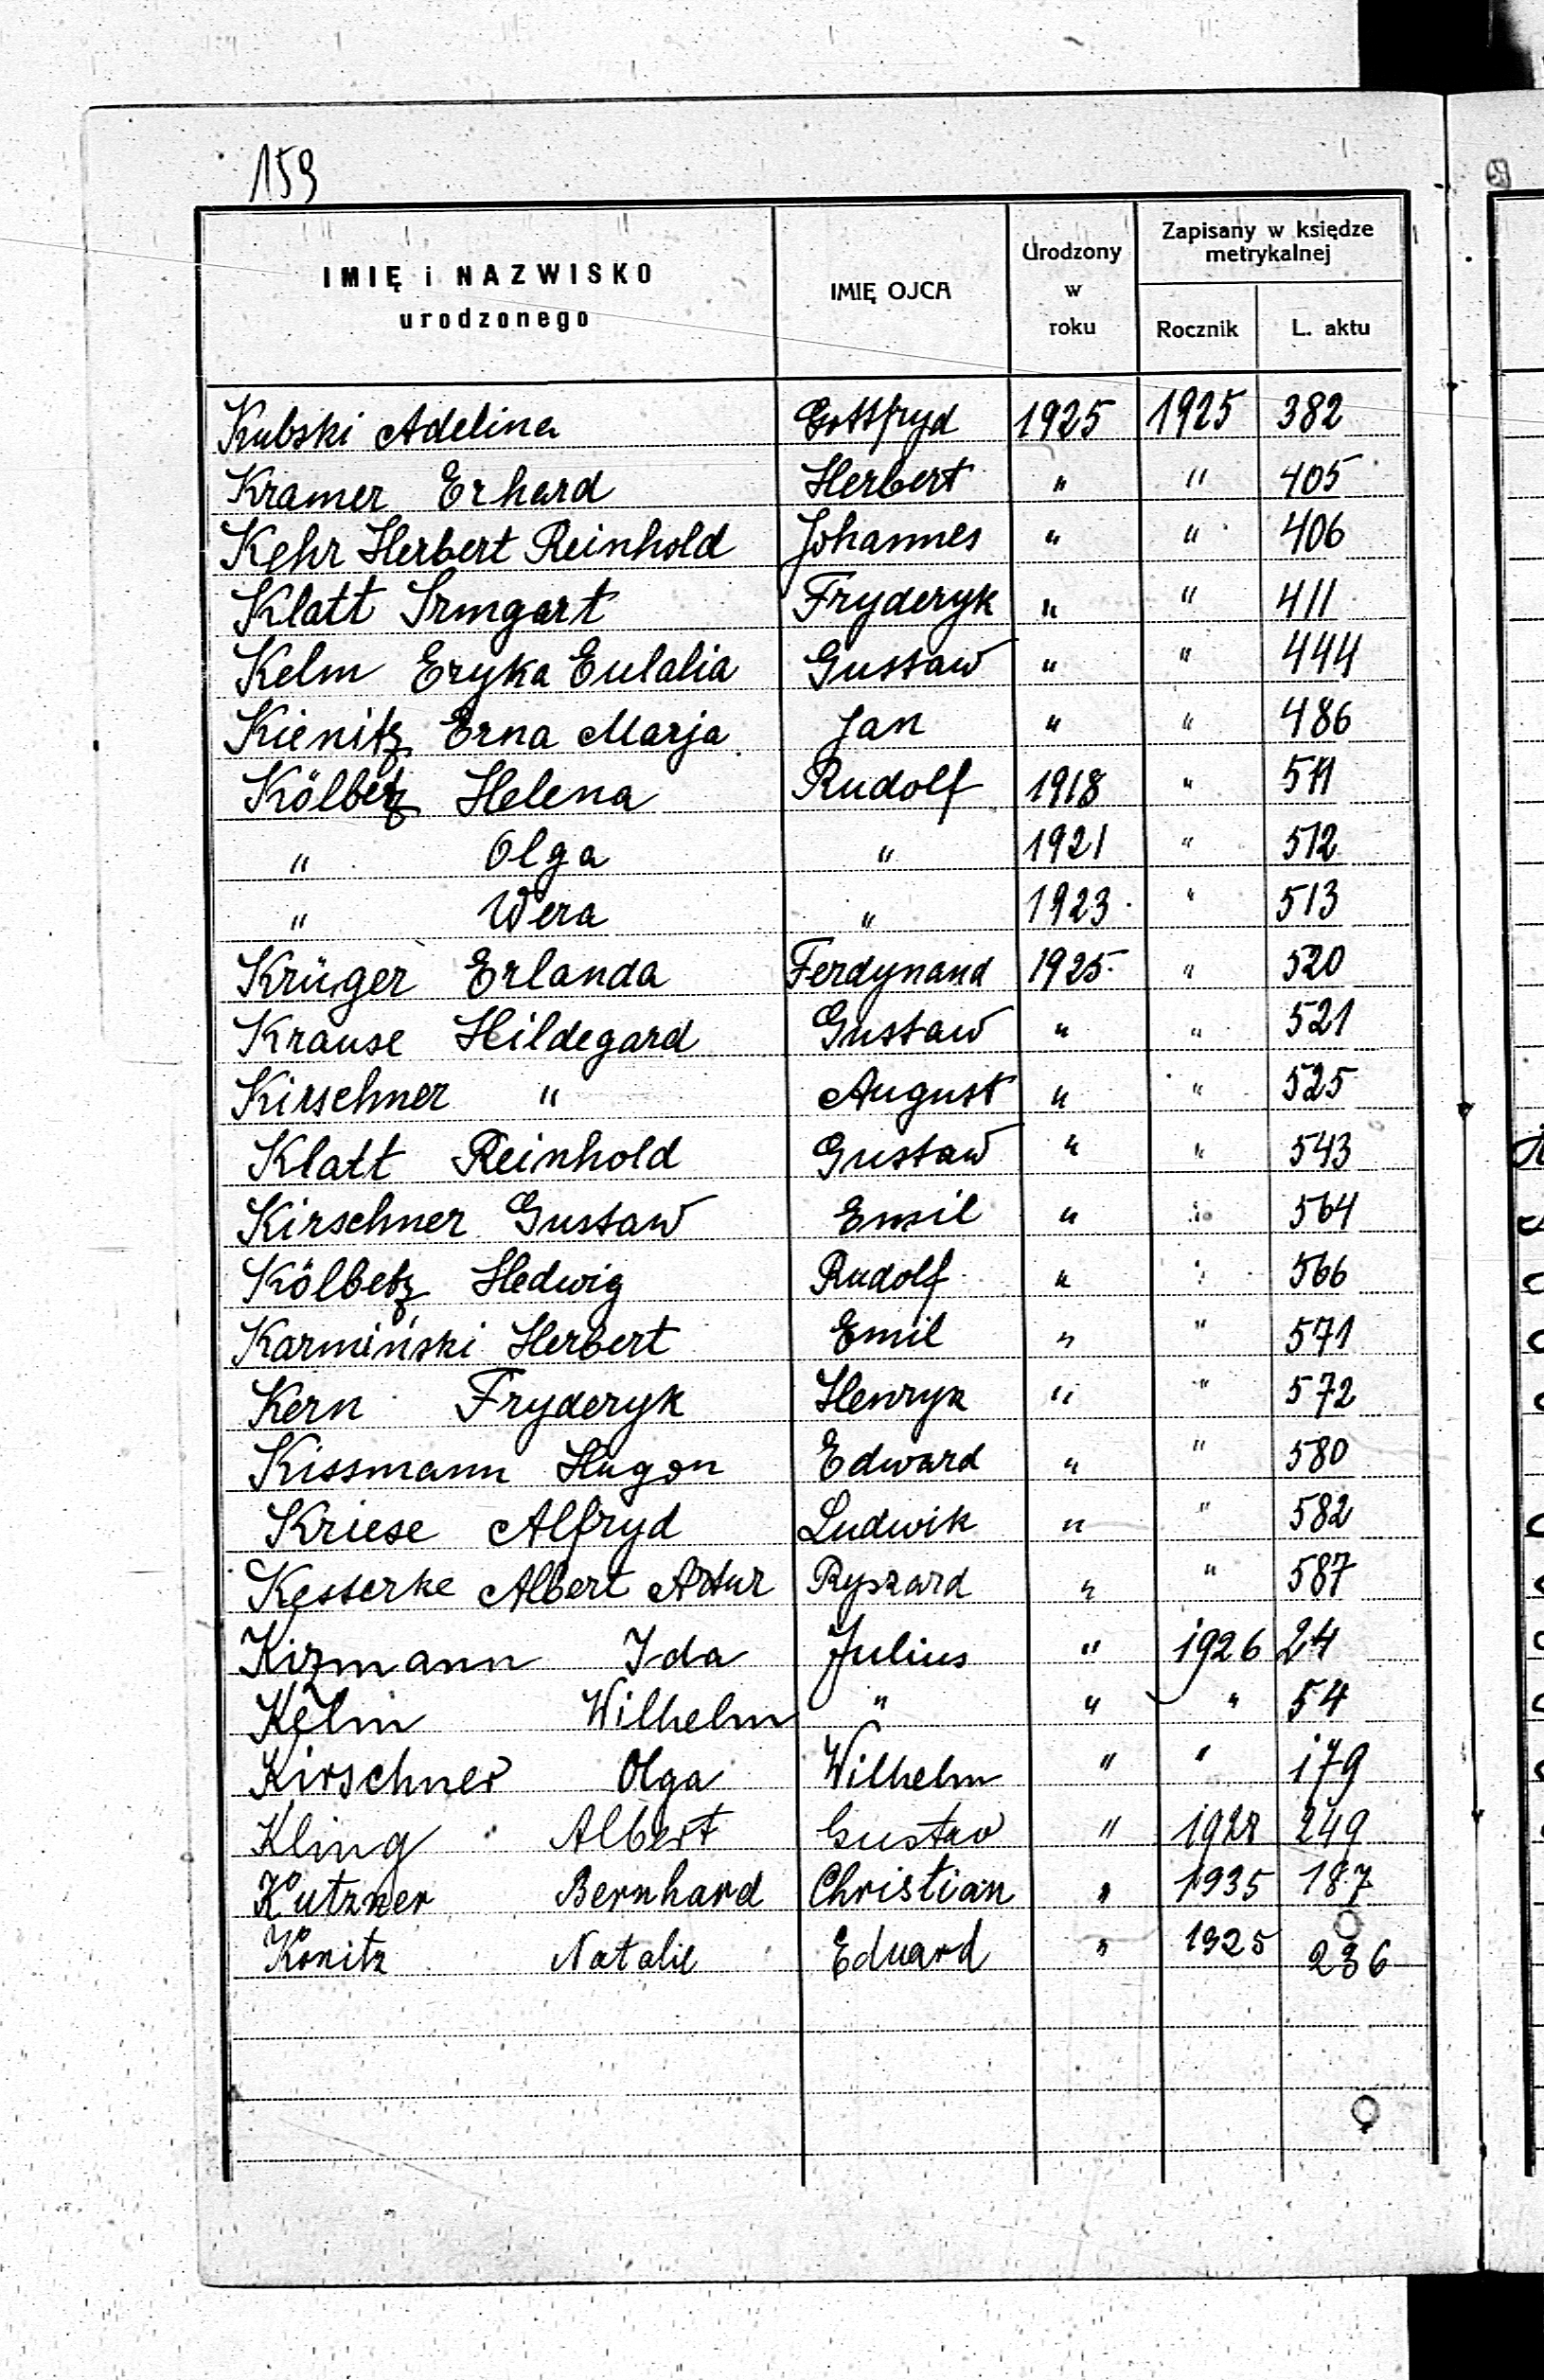 159
IMIĘ i NAZWISKO urodzonego | IMIĘ OJCA | Urodzony w roku | Zapisany w księdze metrykalnej
Rocznik | L. aktu
Kubski Adelina | Gottfryd | 1925 | 1925 | 382
Kramer Erhard | Herbert | " | " | 405
Kehr Herbert Reinhold | Johannes | " | " | 406
Klatt Irmgart | Fryderyk | " | " | 411
Kelm Eryka Eulalia | Gustaw | " | " | 444
Kienitz Erna Marja | Jan | " | " | 486
Kölbetz Helena | Rudolf | 1918 | " | 511
" Olga | " | 1921 | " | 512
" Wera | " | 1923 | " | 513
Krüger Erlanda | Ferdynand | 1925 | " | 520
Krause Hildegard | Gustaw | " | " | 521
Kirschner " | August | " | " | 525
Klatt Reinhold | Gustaw | " | " | 543
Kirschner Gustaw | Emil | " | " | 564
Kölbetz Hedwig | Rudolf | " | " | 566
Karmiński Herbert | Emil | " | " | 571
Kern Fryderyk | Henryk | " | " | 572
Kissmann Hugon | Edward | " | " | 580
Kriese Alfryd | Ludwik | " | " | 582
Kesserke Albert Artur | Ryszard | " | " | 587
Kizmann Ida | Julius | " | 1926 | 24
Kelm Wilhelm | " | " | " | 54
Kirschner Olga | Wilhelm | " | " | 179
Kling Albert | Gustav | " | 1928 | 249
Kutzner Bernhard | Christian | " | 1935 | 187
Konitz Natalie | Eduard | " | 1925 | 236